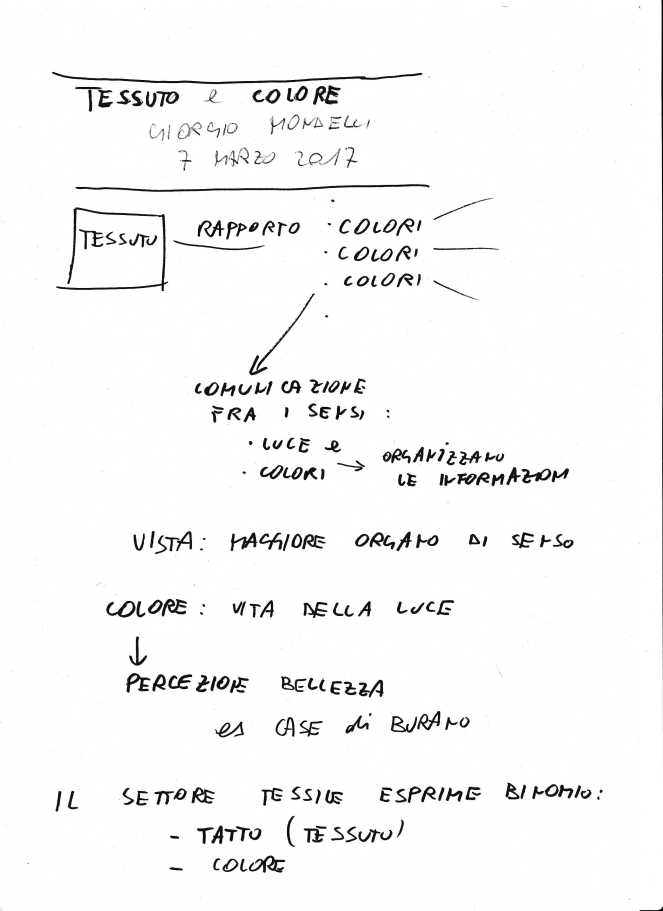 TESSUTO e COLORE
GIORGIO MONDELLI
7 MARZO 2017
TESSUTO RAPPORTO · COLORI
· COLORI
· COLORI
COMUNICAZIONE
FRA I SENSI :
· LUCE e
· COLORI → ORGANIZZANO
LE INFORMAZIONI
VISTA : MAGGIORE ORGANO DI SENSO
COLORE : VITA DELLA LUCE
PERCEZIONE BELLEZZA
es CASE di BURANO
IL SETTORE TESSILE ESPRIME BINOMIO :
- TATTO (TESSUTO)
- COLORE